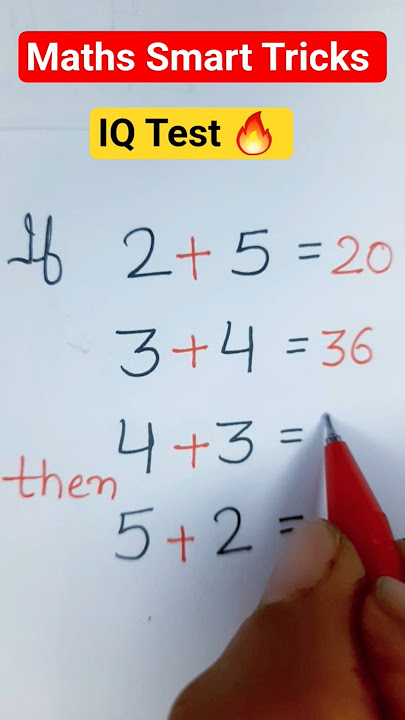 Maths Smart Tricks
IQ Test 🔥
If 2 + 5 = 20
3 + 4 = 36
4 + 3 =
then
5 + 2 =